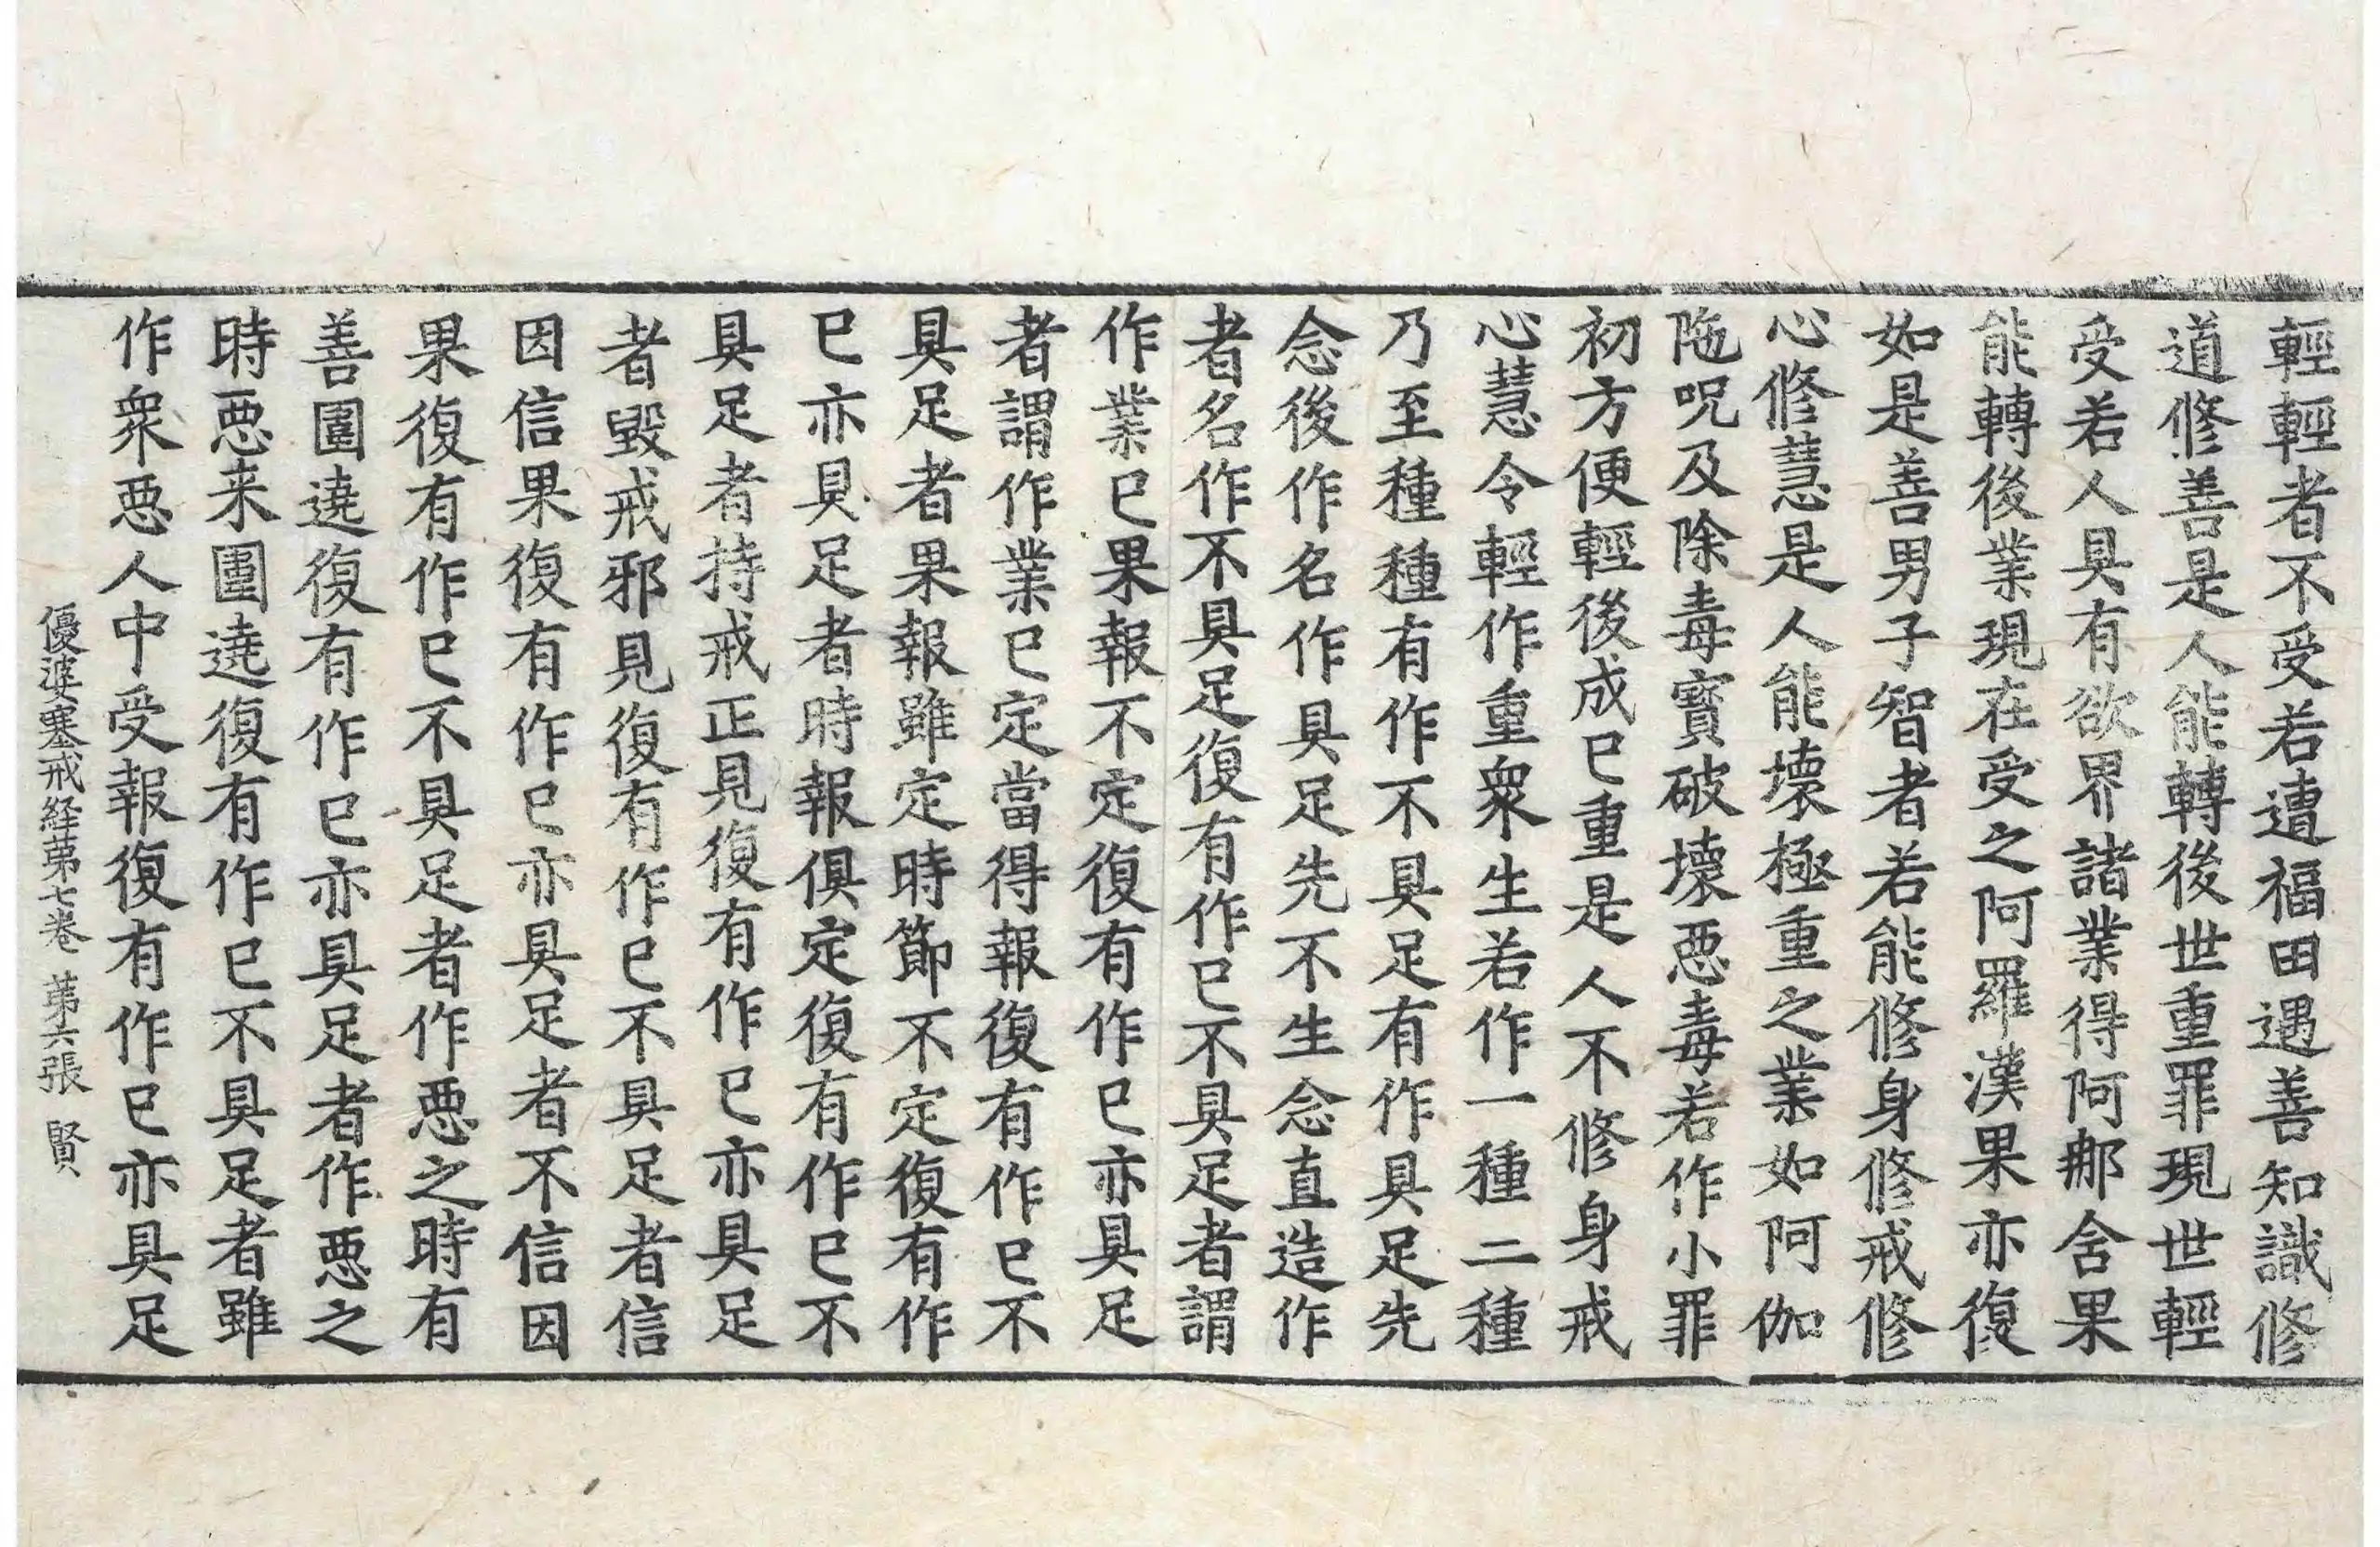 輕輕者不受若遭福田遇善知識修
道修善是人能轉後世重罪現世輕
受若人具有欲界諸業得阿那舍果
能轉後業現在受之阿羅漢果亦復
如是善男子智者若能修身修戒修
心修慧是人能壞極重之業如阿伽
陁呪及除毒寶破壞惡毒若作小罪
初方便輕後成已重是人不修身戒
心慧令輕作重衆生若作一種二種
乃至種種有作不具足有作具足先
念後作名作具足先不生念直造作
者名作不具足復有作已不具足者謂
作業已果報不定復有作已亦具足
者謂作業已定當得報復有作已不
具足者果報雖定時節不定復有作
已亦具足者時報俱定復有作已不
具足者持戒正見復有作已亦具足
者毀戒邪見復有作已不具足者信
因信果復有作已亦具足者不信因
果復有作已不具足者作惡之時有
善圍遶復有作已亦具足者作惡之
時惡来圍遶復有作已不具足者雖
作衆惡人中受報復有作已亦具足
優婆塞戒経第七卷 第六張 賢